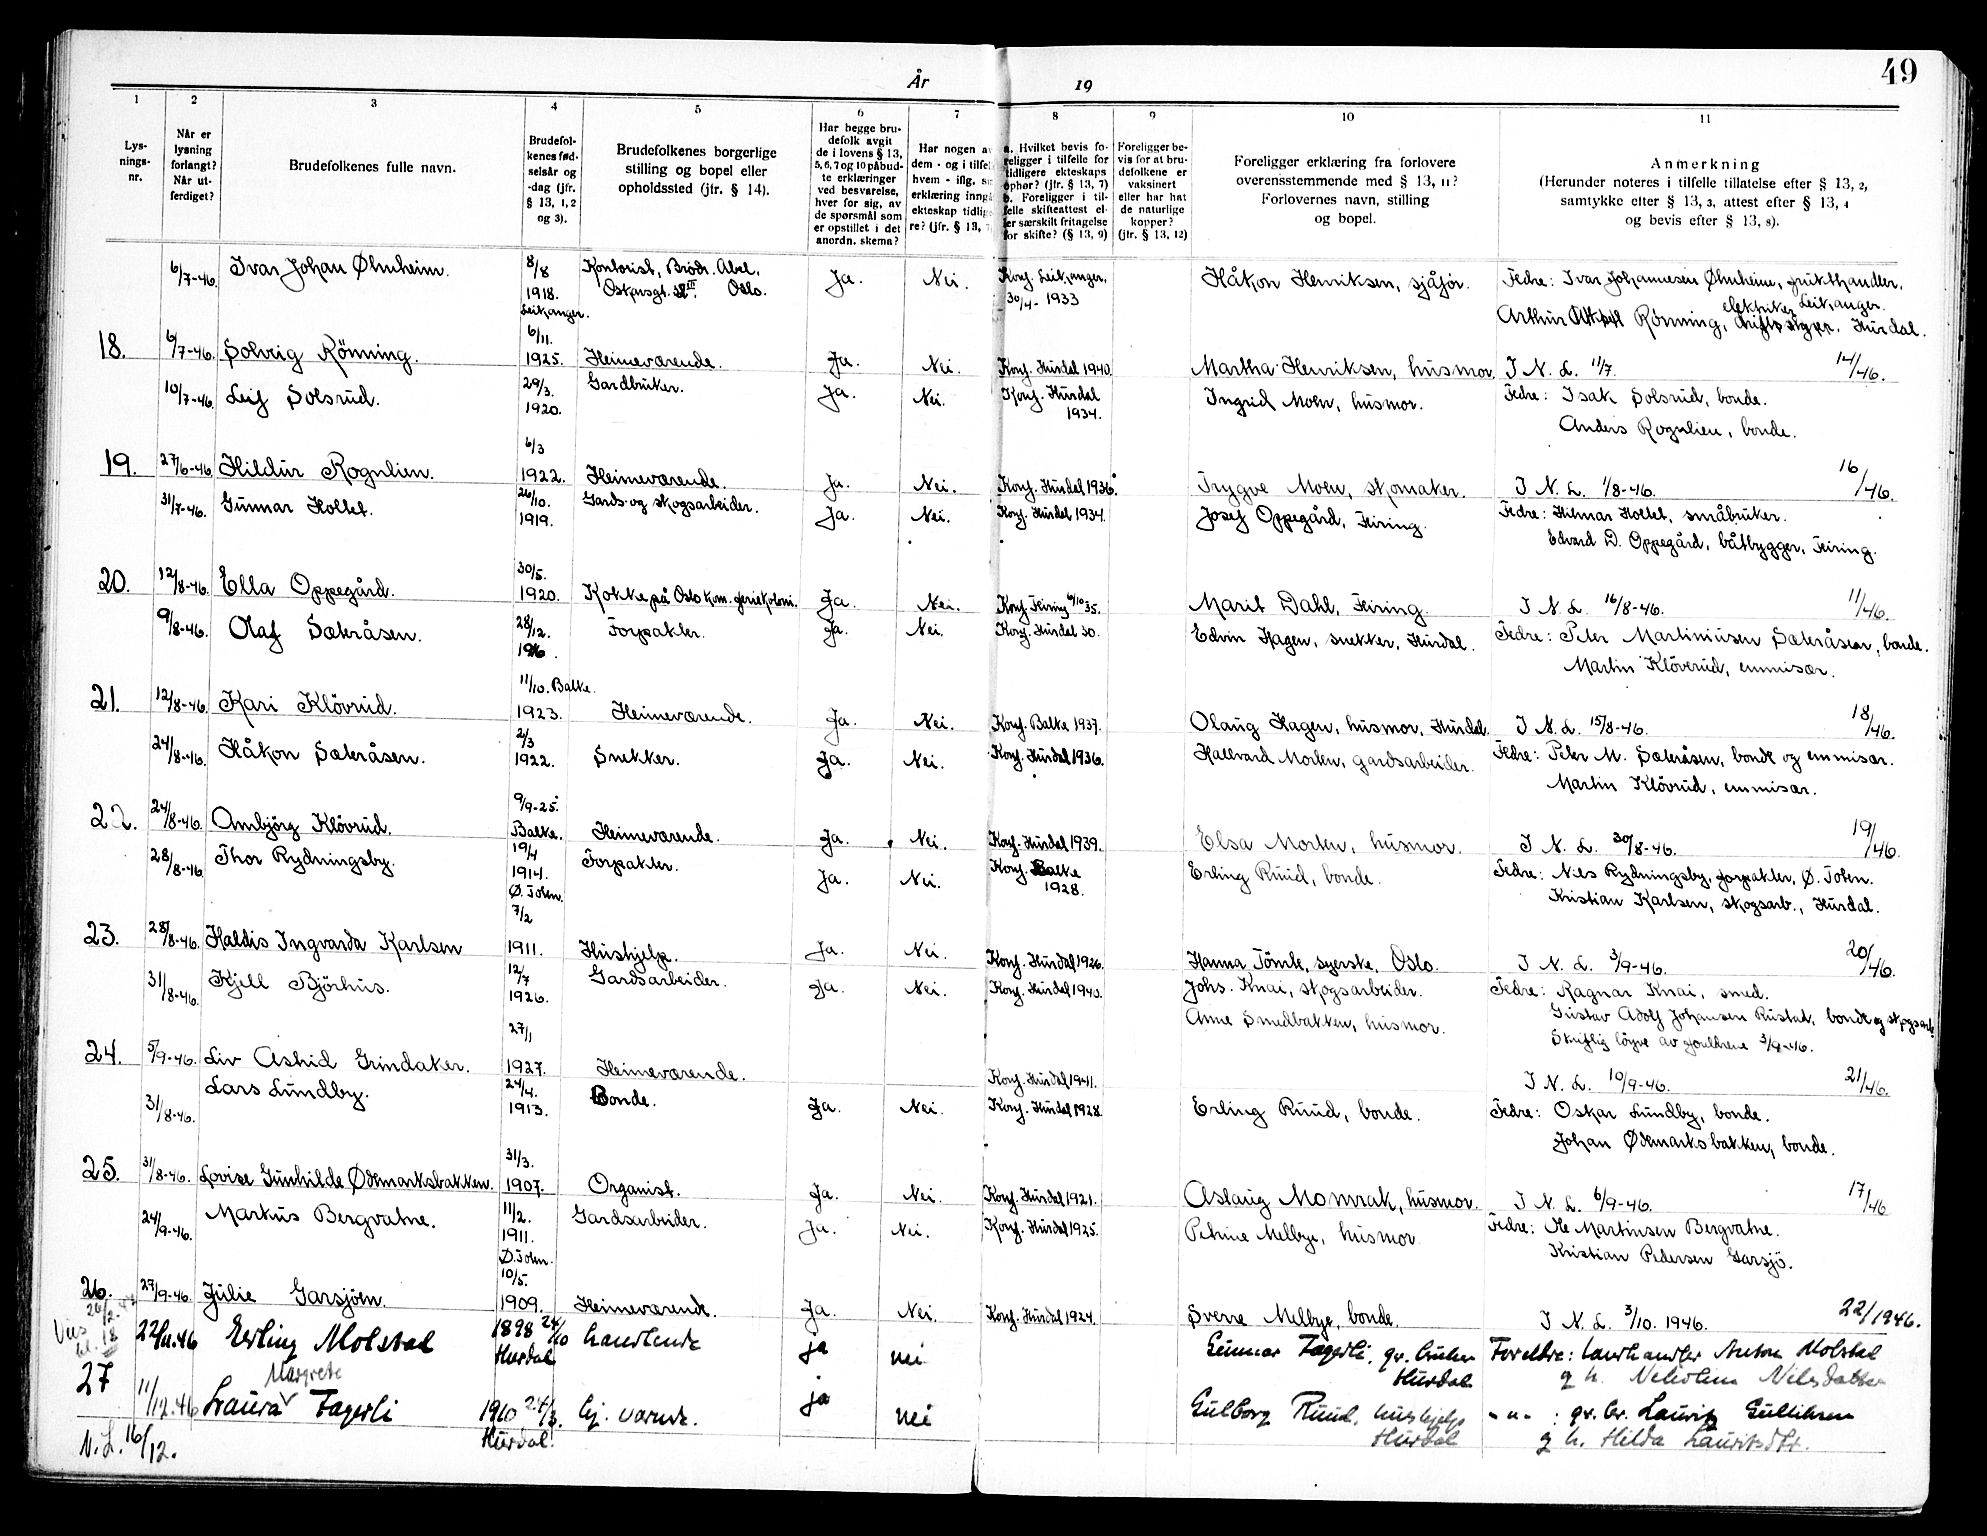 49
År 19
1 2 3 4 5 6 7 8 9 10 11
Lys-
nings-
nr.
Når er
lysning
forlangt?
Når ut-
ferdiget?
Brudefolkenes fulle navn.
Brudefol-
kenes fød-
selsår og
-dag (jfr.
§ 13, 1, 2
og 3).
Brudefolkenes borgerlige
stilling og bopel eller
opholdssted (jfr. § 14).
Har begge bru-
defolk avgit
de i lovens § 13,
5, 6, 7 og 10 påbud-
te erklæringer
ved besvarelse,
hver for sig, av
de spørsmål som
er opstillet i det
anordn. skema?
Har nogen av
dem - og i tilfel
hvem - iflg. si
erklæring inngå
ekteskap tidlige
re? (jfr. § 13,
a. Hvilket bevis fo-
religger i tilfelle for
tidligere ekteskaps
ophør? (jfr. § 13, 7)
b. Foreligger i til-
felle skifteattest el-
ler særskilt fritagelse
for skifte? (§ 13, 9)
Foreligger be-
vis for at bru-
defolkene er
vaksinert
eller har hat
de naturlige
kopper?
(jfr. § 13, 12)
Foreligger erklæring fra forlovere
overensstemmende med § 13, 11?
Forlovernes navn, stilling
og bopel.
Anmerkning
(Herunder noteres i tilfelle tillatelse efter § 13, 2,
samtykke efter § 13, 3, attest efter § 13, 4
og bevis efter § 13, 8).
6/7-46. Ivar Johan Ølmheim. 8/8 1918. Leikanger. Kontorist, Brødr. Abel, Oskarsgt. Oslo. Ja. Nei. Konf. Leikanger, 30/4- 1933 Håkon Henriksen, sjåfør. Fedre: Ivar Johannesen Ølmheim, frukthandler, Leikanger.
Arthur Rønning, elektriker, Hurdal.
18. 6/7-46. Solvig Rönning. 6/11. 1925. Heimeværende. Ja. Nei. Konf. Hurdal 1940. Martha Henriksen, husmor. I N. L. 11/7. 14/46.
10/7-46. Leif Solsrud. 29/3. 1920. Gardbruker. Ja. Nei. Konf. Hurdal 1934. Ingrid Moen, husmor. Fedre: Isak Solsrud, bonde.
Anders Rognlien, bonde.
19. 27/6-46. Hildur Rognlien. 6/3 1922. Heimeværende. Ja. Nei. Konf. Hurdal 1936. Trygve Moen, skomaker. I N. L. 1/8-46. 16/46.
31/7-46. Gunnar Holtet. 26/10. 1919. Gards- og skogsarbeider. Ja. Nei. Konf. Hurdal 1934. Josef Oppegård, Feiring. Fedre: Hilmar Holtet, småbruker.
Edvard D. Oppegård, båtbygger, Feiring.
20. 12/8-46. Ella Oppegård. 30/5. 1920. Kokke på Oslo kom. feriekoloni. Ja. Nei. Konf. Feiring 6/10 35. Marit Dahl, Feiring. I N. L. 16/8-46. 11/46.
9/8-46. Olaf Sæteråsen. 28/12. 1916. Forpakter. Ja. Nei. Konf. Hurdal 30. Edvin Hagen, snekker, Hurdal. Fedre: Peter Martiniusen Sæteråsen, bonde.
Martin Klöverud, emmisær.
21. 12/8-46. Kari Klövrud. 11/10. Balke. 1923. Heimeværende. Ja. Nei. Konf. Balke 1937. Olaug Hagen, husmor, Hurdal. I N. L. 15/8-46. 18/46.
24/8-46. Håkon Sæteråsen. 2/3 1922. Snekker. Ja. Nei. Konf. Hurdal 1936. Hallvard Morten, gardsarbeider. Fedre: Peter M. Sæteråsen, bonde og emmisær.
Martin Klövrud, emmisær.
22. 24/8-46. Ambjörg Klövrud. 9/9-25. Balke. Heimeværende. Ja. Nei. Konf. Hurdal 1939. Elsa Morten, husmor. I N. L. 30/8-46. 19/46.
28/8-46. Thor Rydningsby. 19/4 1914. Ø. Toten. Forpakter. Ja. Nei. Konf. Balke 1928. Erling Ruud, bonde. Fedre: Nils Rydningsby, forpakter, Ø. Toten.
Kristian Karlsen, skogsarb., Hurdal.
23. 28/8-46. Haldis Ingvarda Karlsen 7/2 1911. Hushjelp. Ja. Nei. Konf. Hurdal 1926. Hanna Tömte, syerske, Oslo. I N. L. 3/9-46. 20/46.
31/8-46. Kjell Björhus. 12/7 1926. Gardsarbeider. Ja. Nei. Konf. Hurdal 1940. Johs. Knai, skogsarbeider. Fedre: Ragnar Knai, smed.
Anne Smedbakken, husmor. Gustav Adolf Johansen Rustad, bonde og skogsarb.
Skriftlig löyve av foreldrene 3/9-46.
24. 5/9-46. Liv Astrid Grindaker. 27/1 1927. Heimeværende. Konf. Hurdal 1941. I N. L. 10/9-46. 21/46.
31/8-46. Lars Lundby. 24/4. 1913. Bonde. Ja. Nei. Konf. Hurdal 1928. Erling Ruud, bonde. Fedre: Oskar Lundby, bonde.
Johan Ødemarksbakken, bonde.
25. 31/8-46. Lovise Gunhilde Ødemarksbakken. 31/3. 1907. Organist. Ja. Nei. Konf. Hurdal 1921. Aslaug Momrak, husmor. I N. L. 6/9-46. 17/46
24/9-46. Markus Bergvatne. 11/2. 1911. Ø. Toten. Gardsarbeider. Ja. Nei. Konf. Hurdal 1925. Petrine Melbye, husmor. Fedre: Ole Martinsen Bergvatne.
Kristian Pedersen Garsjö.
26. 27/9-46. Julie Garsjöen. 10/5. 1909. Heimeværende. Ja. Nei. Konf. Hurdal 1924. Sverre Melbye, bonde. I N. L. 3/10. 1946. 22/1946.
22/11.46 Erling Molstad 1898 24/10 Hurdal handlende ja nei Gunnar Fagerli, gv. bruker Hurdal Foreldre: landhandler Anton Molstad
g h. Nilsdatter
27 11/12.46 Laura Margrete Fagerli 1910 24/3. Hurdal. hj. værende. ja nei Gulborg Ruud, hushjelp Hurdal - " - : gv. br. Lauritz Gulliksen
g h. Hilda Lauritsdtr.
N. L. 16/12.